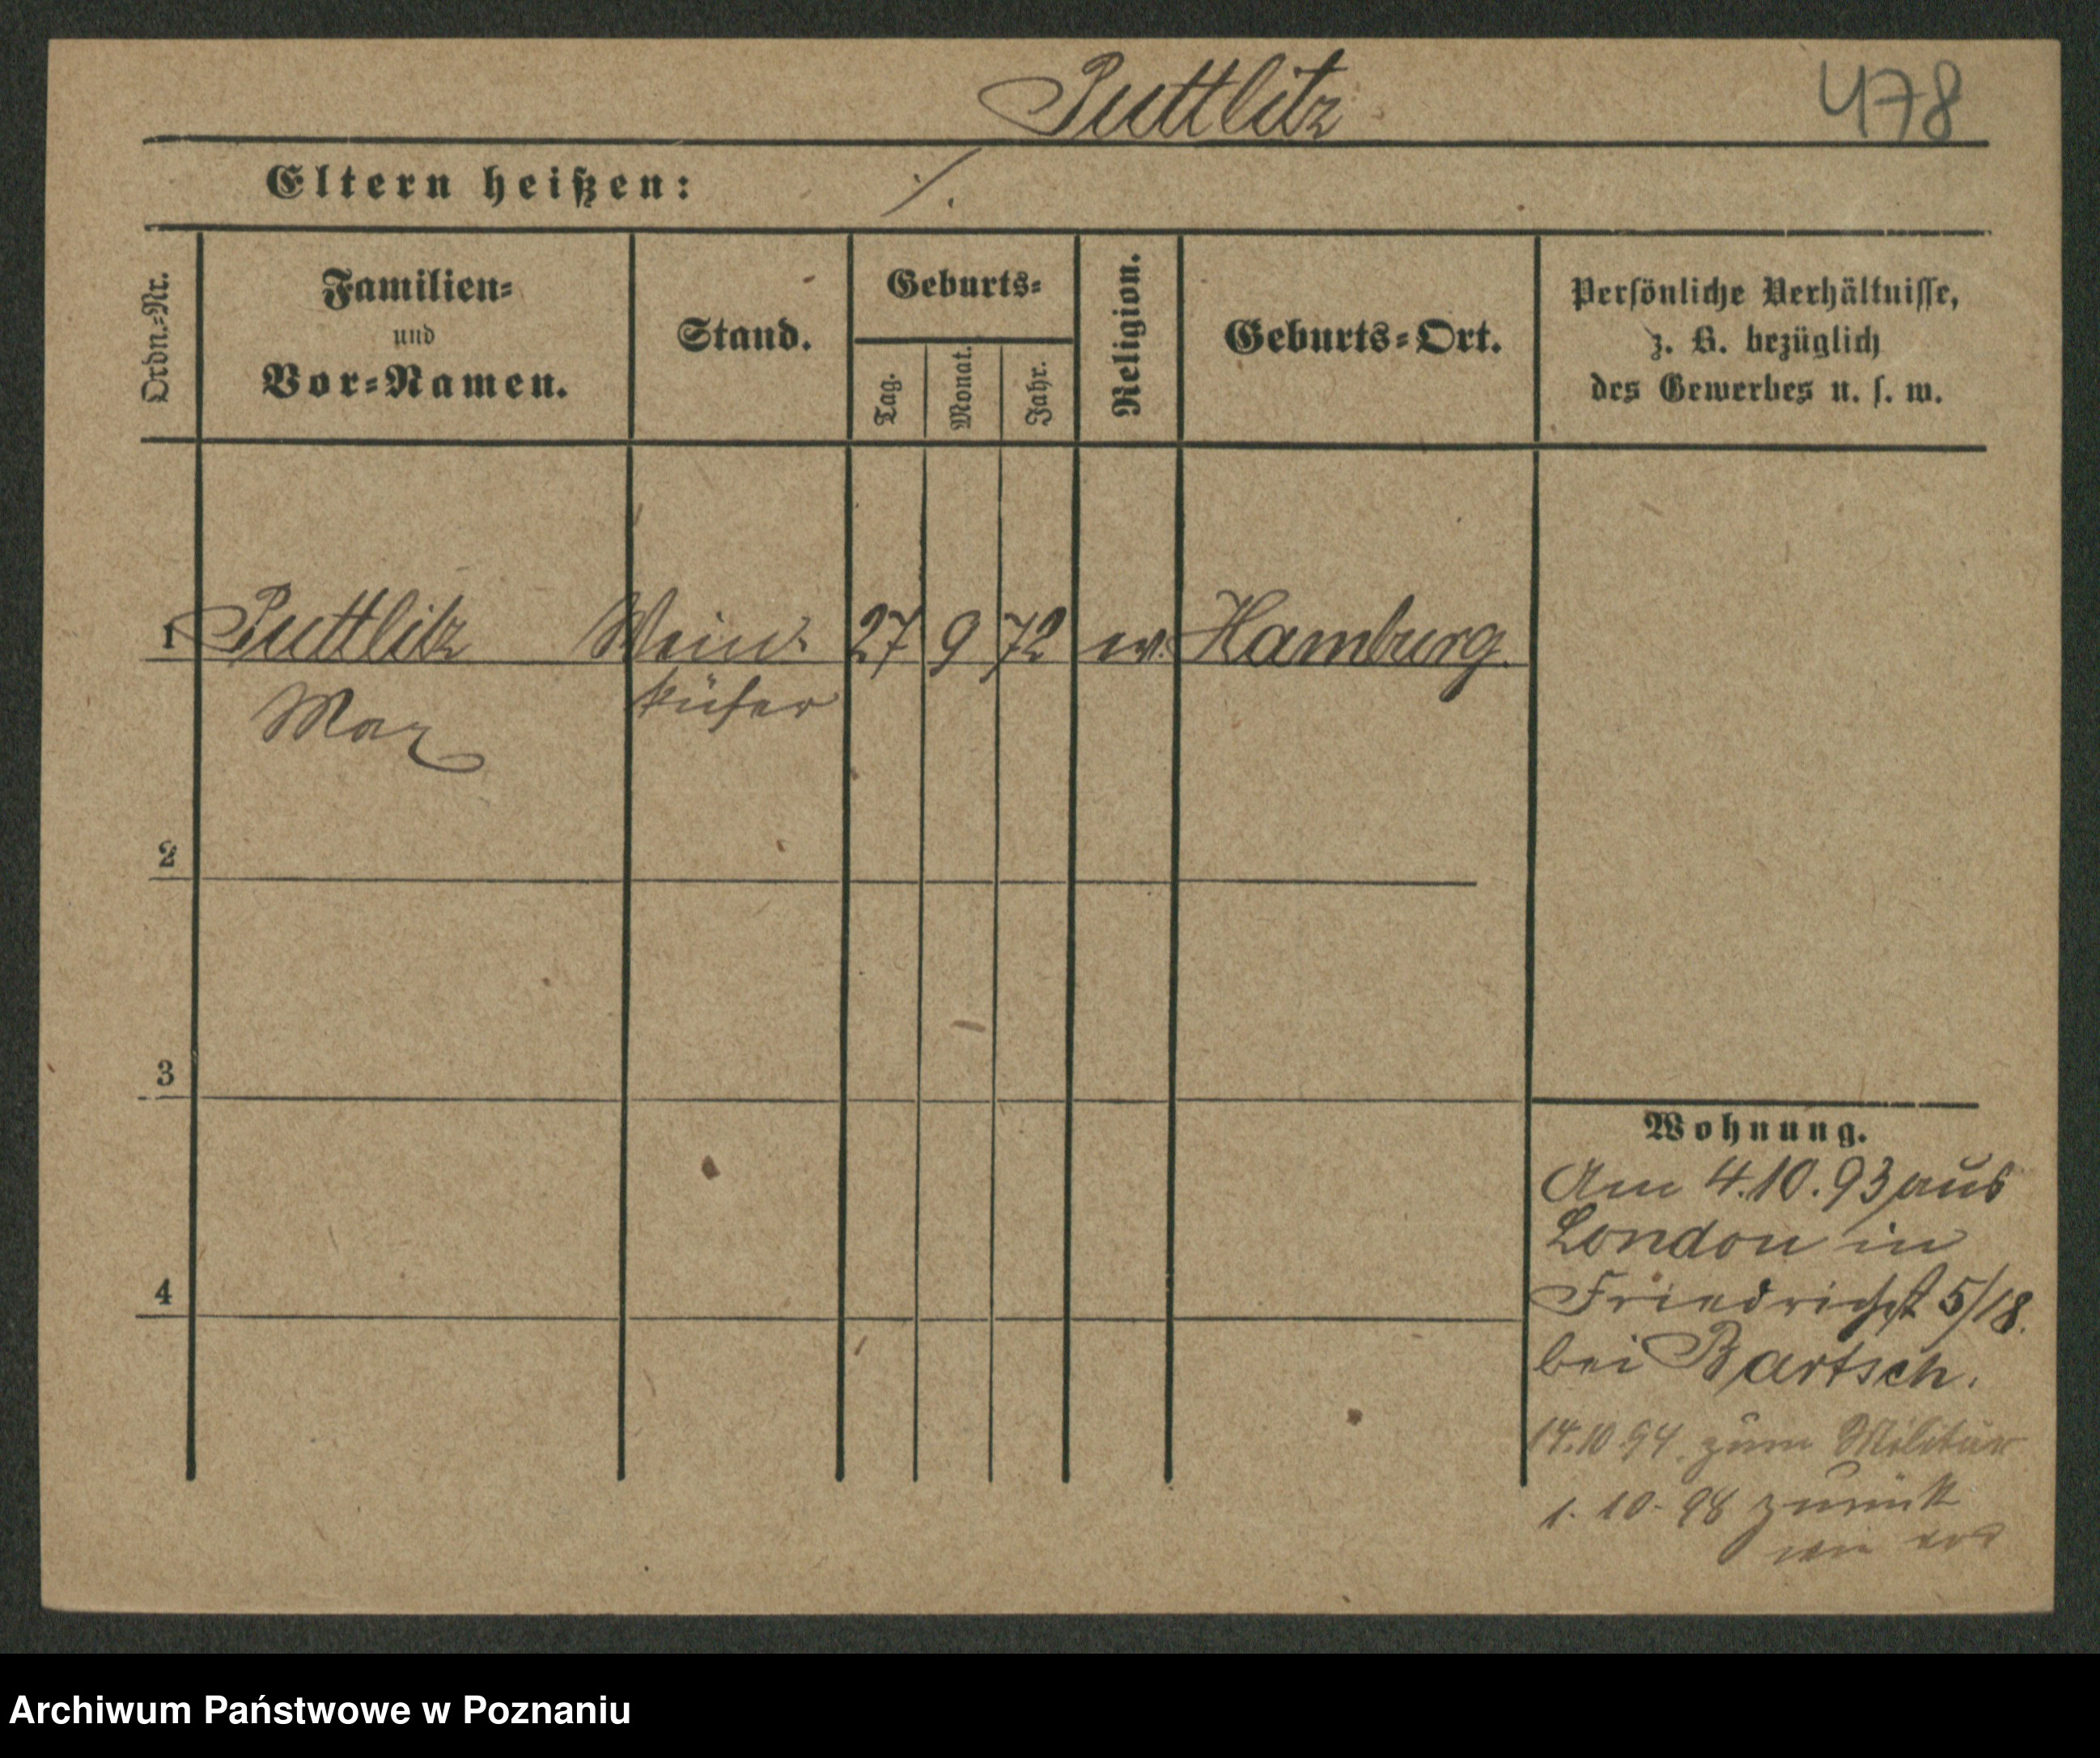 Puttlitz
478
Eltern heißen: ./.
Ordn.-Nr.
Familien-
und
Vor-Namen.
Stand.
Geburts-
Tag.
Monat.
Jahr.
Religion.
Geburts-Ort.
Persönliche Verhältnisse,
z. B. bezüglich
des Gewerbes u. s. w.
1 Puttlitz Wein- 27 9 72 ev. Hamburg.
Max küfer
2
3
4
Wohnung.
Am 4.10.93 aus
London in
Friedrichst 5/18.
bei Bartsch.
14.10.94. zum Militär
1. 10. 98 zurück
wie
Archiwum Państwowe w Poznaniu